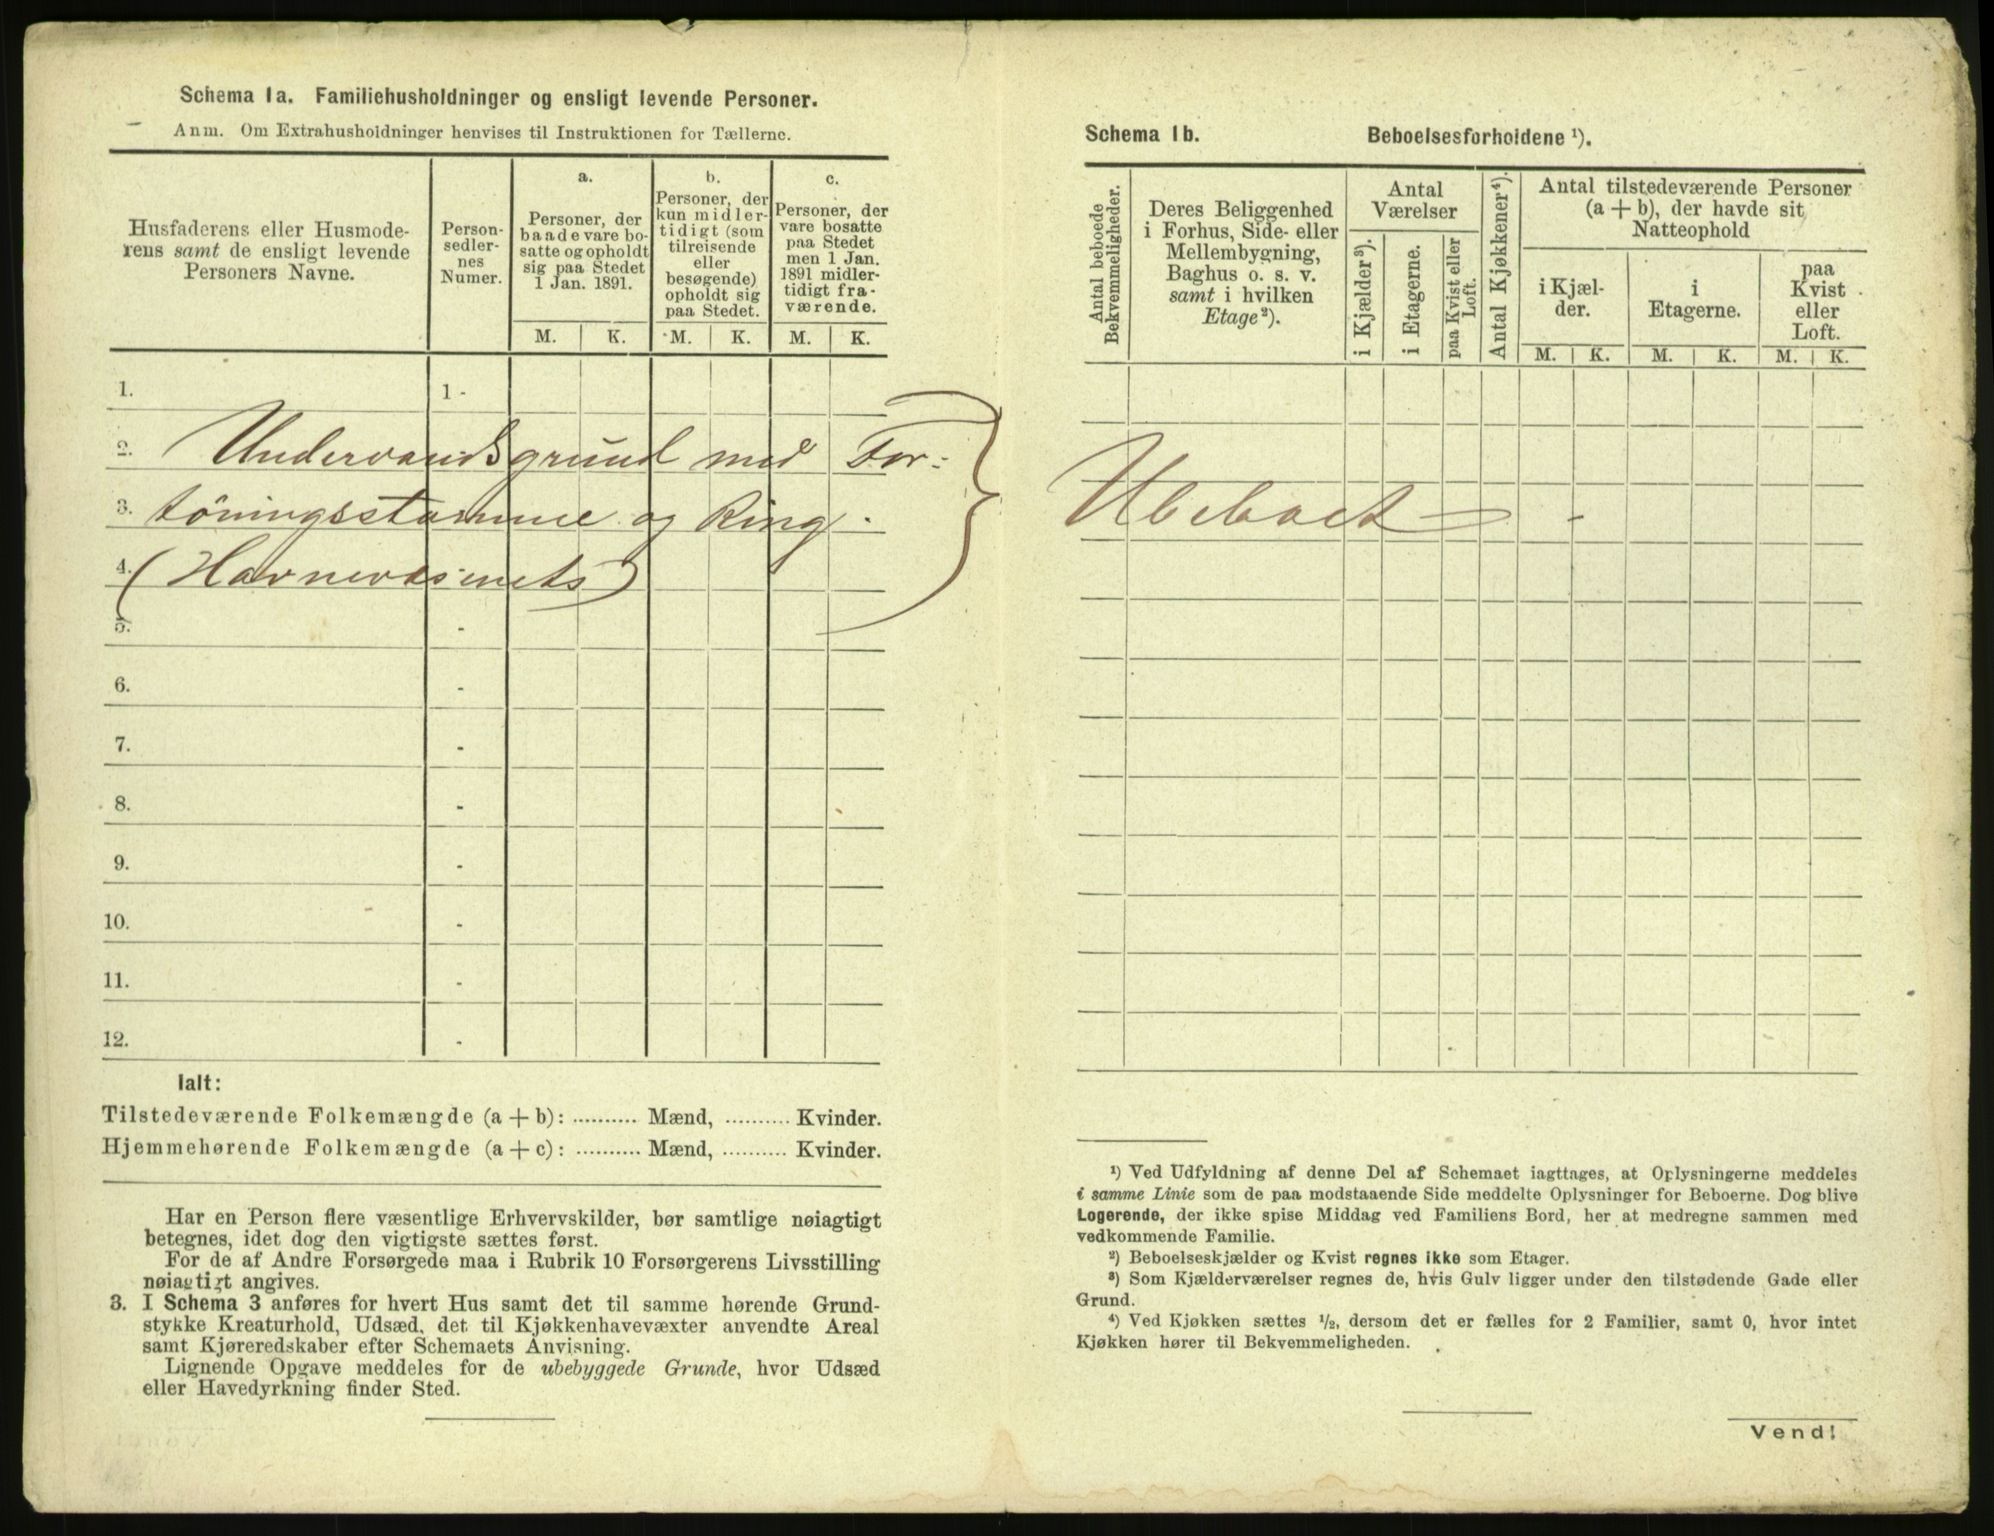 Schema 1a. Familiehusholdninger og ensligt levende Personer.
Anm. Om Extrahusholdninger henvises til Instruktionen for Tællerne.
Husfaderens eller Husmode-
rens samt de ensligt levende
Personers Navne.
Person-
sedler-
nes
Numer.
a.
Personer, der
baade vare bo-
satte og opholdt
sig paa Stedet
1 Jan. 1891.
M. K.
b.
Personer, der
kun midler-
tidigt (som
tilreisende
eller
besøgende)
opholdt sig
paa Stedet.
M. K.
c.
Personer, der
vare bosatte
paa Stedet
men 1 Jan.
1891 midler-
tidigt fra-
værende.
M. K.
1. 1 -
2. Undervandsgrund med For-
3. töningsstamme og Ring.
4. (Havnevæsenets)
5. -
6. -
7. -
8. -
9. -
10. -
11. -
12. -
Ialt:
Tilstedeværende Folkemængde (a + b): .......... Mænd, .......... Kvinder.
Hjemmehørende Folkemængde (a + c): .......... Mænd, .......... Kvinder.
Har en Person flere væsentlige Erhvervskilder, bør samtlige nøiagtigt
betegnes, idet dog den vigtigste sættes først.
For de af Andre Forsørgede maa i Rubrik 10 Forsørgerens Livsstilling
nøiagtigt angives.
3. I Schema 3 anføres for hvert Hus samt det til samme hørende Grund-
stykke Kreaturhold, Udsæd, det til Kjøkkenhavevæxter anvendte Areal
samt Kjøreredskaber efter Schemaets Anvisning.
Lignende Opgave meddeles for de ubebyggede Grunde, hvor Udsæd
eller Havedyrkning finder Sted.
Schema 1b. Beboelsesforholdene ¹).
Antal beboede
Bekvemmeligheder.
Deres Beliggenhed
i Forhus, Side- eller
Mellembygning,
Baghus o. s. v.
samt i hvilken
Etage²).
Antal
Værelser
i Kjælder³).
i Etagerne.
paa Kvist eller
Loft.
Antal Kjøkkener⁴).
Antal tilstedeværende Personer
(a + b), der havde sit
Natteophold
i Kjæl-
der.
M. K.
i
Etagerne.
M. K.
paa
Kvist
eller
Loft.
M. K.
Ubeboet -
¹) Ved Udfyldning af denne Del af Schemaet iagttages, at Oplysningerne meddeles
i samme Linie som de paa modstaaende Side meddelte Oplysninger for Beboerne. Dog blive
Logerende, der ikke spise Middag ved Familiens Bord, her at medregne sammen med
vedkommende Familie.
²) Beboelseskjælder og Kvist regnes ikke som Etager.
³) Som Kjælderværelser regnes de, hvis Gulv ligger under den tilstødende Gade eller
Grund.
⁴) Ved Kjøkken sættes ½, dersom det er fælles for 2 Familier, samt 0, hvor intet
Kjøkken hører til Bekvemmeligheden.
Vend!